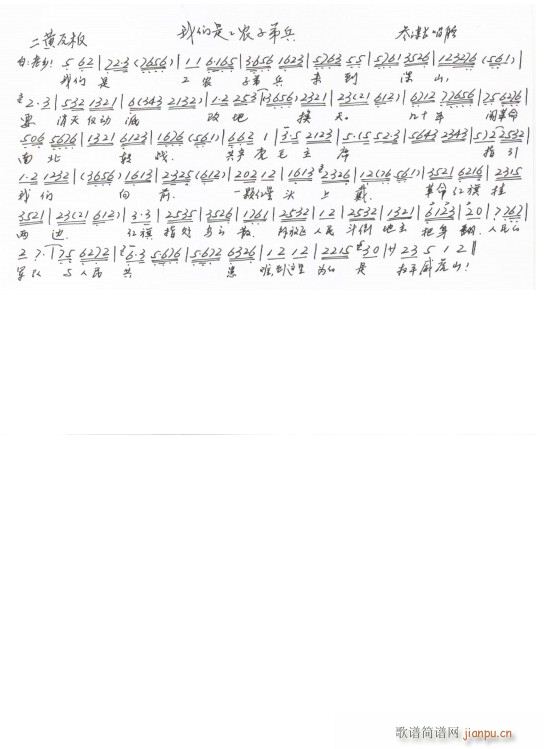 二黄反板 我们是工农子弟兵 参谋长唱腔
白:老乡! 5 62 | 72·3 (7656) | 1 1 6·165 | 3656 1623 | 5763 55 | 5761 3526 | 123276 (561) |
我们是 工农子弟兵 来到深山,
2·3 | 532 1321 | 6(343 2132) | 1·2 253 | (3656) 2321 | 23(21 612) | 6712 77656 | 75 6276 |
要消灭反动派 改地换天。 几十年 闹革命
506 5676 | 1321 6123 | 1676 (561) | 662 1 | 3·5 2123 | 5·15 52·3 | 5643 2343 | 572 2532 |
南北转战. 共产党毛主席 指引
1·2 1232 | (3656) 1613 | 2325 (612) | 202 12 | 1613 2326 | 12(76 561) | 3521 6216 | 2315
我们 向前. 一颗红星头上戴. 革命红旗挂
3521 | 23(21 612) | 3·3 | 2535 | 3526 | 1761 | 2532 | 1 2 | 2532 | 1321 | 6123 | 20 | 7763 |
两边. 红旗指处乌云散. 解放区人民斗倒地主把身翻. 人民的
2 7· | 75 6272 | 6·3 5676 | 5672 6326 | 12 12 | 2215 30 | サ 23 5 1 2 ‖
军队与人民共患难到这里为的是扫平威虎山!
歌谱简谱网
jianpu.cn